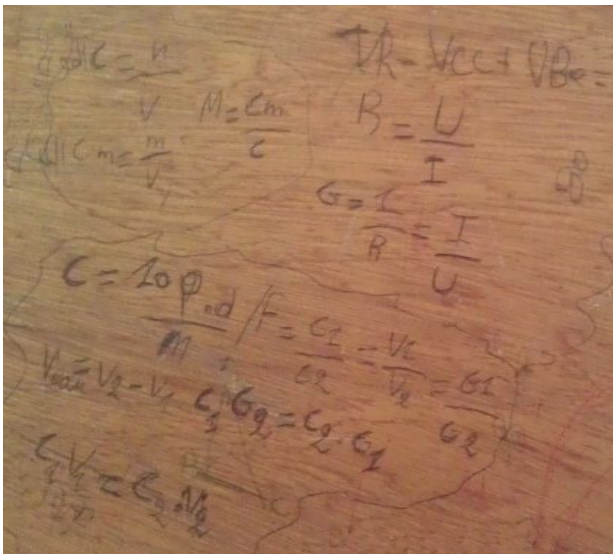 C = n/V
M = Cm/C
Cm = m/V
VR - VCC + VBe =
R = U/I
G = 1/R = I/U
C = 10 p.d/M / F = C1/C2 = V1/V2 = G1/G2
= V2 - V1
C1 G2 = C2 . G1
C1 V1 = C2 . V2